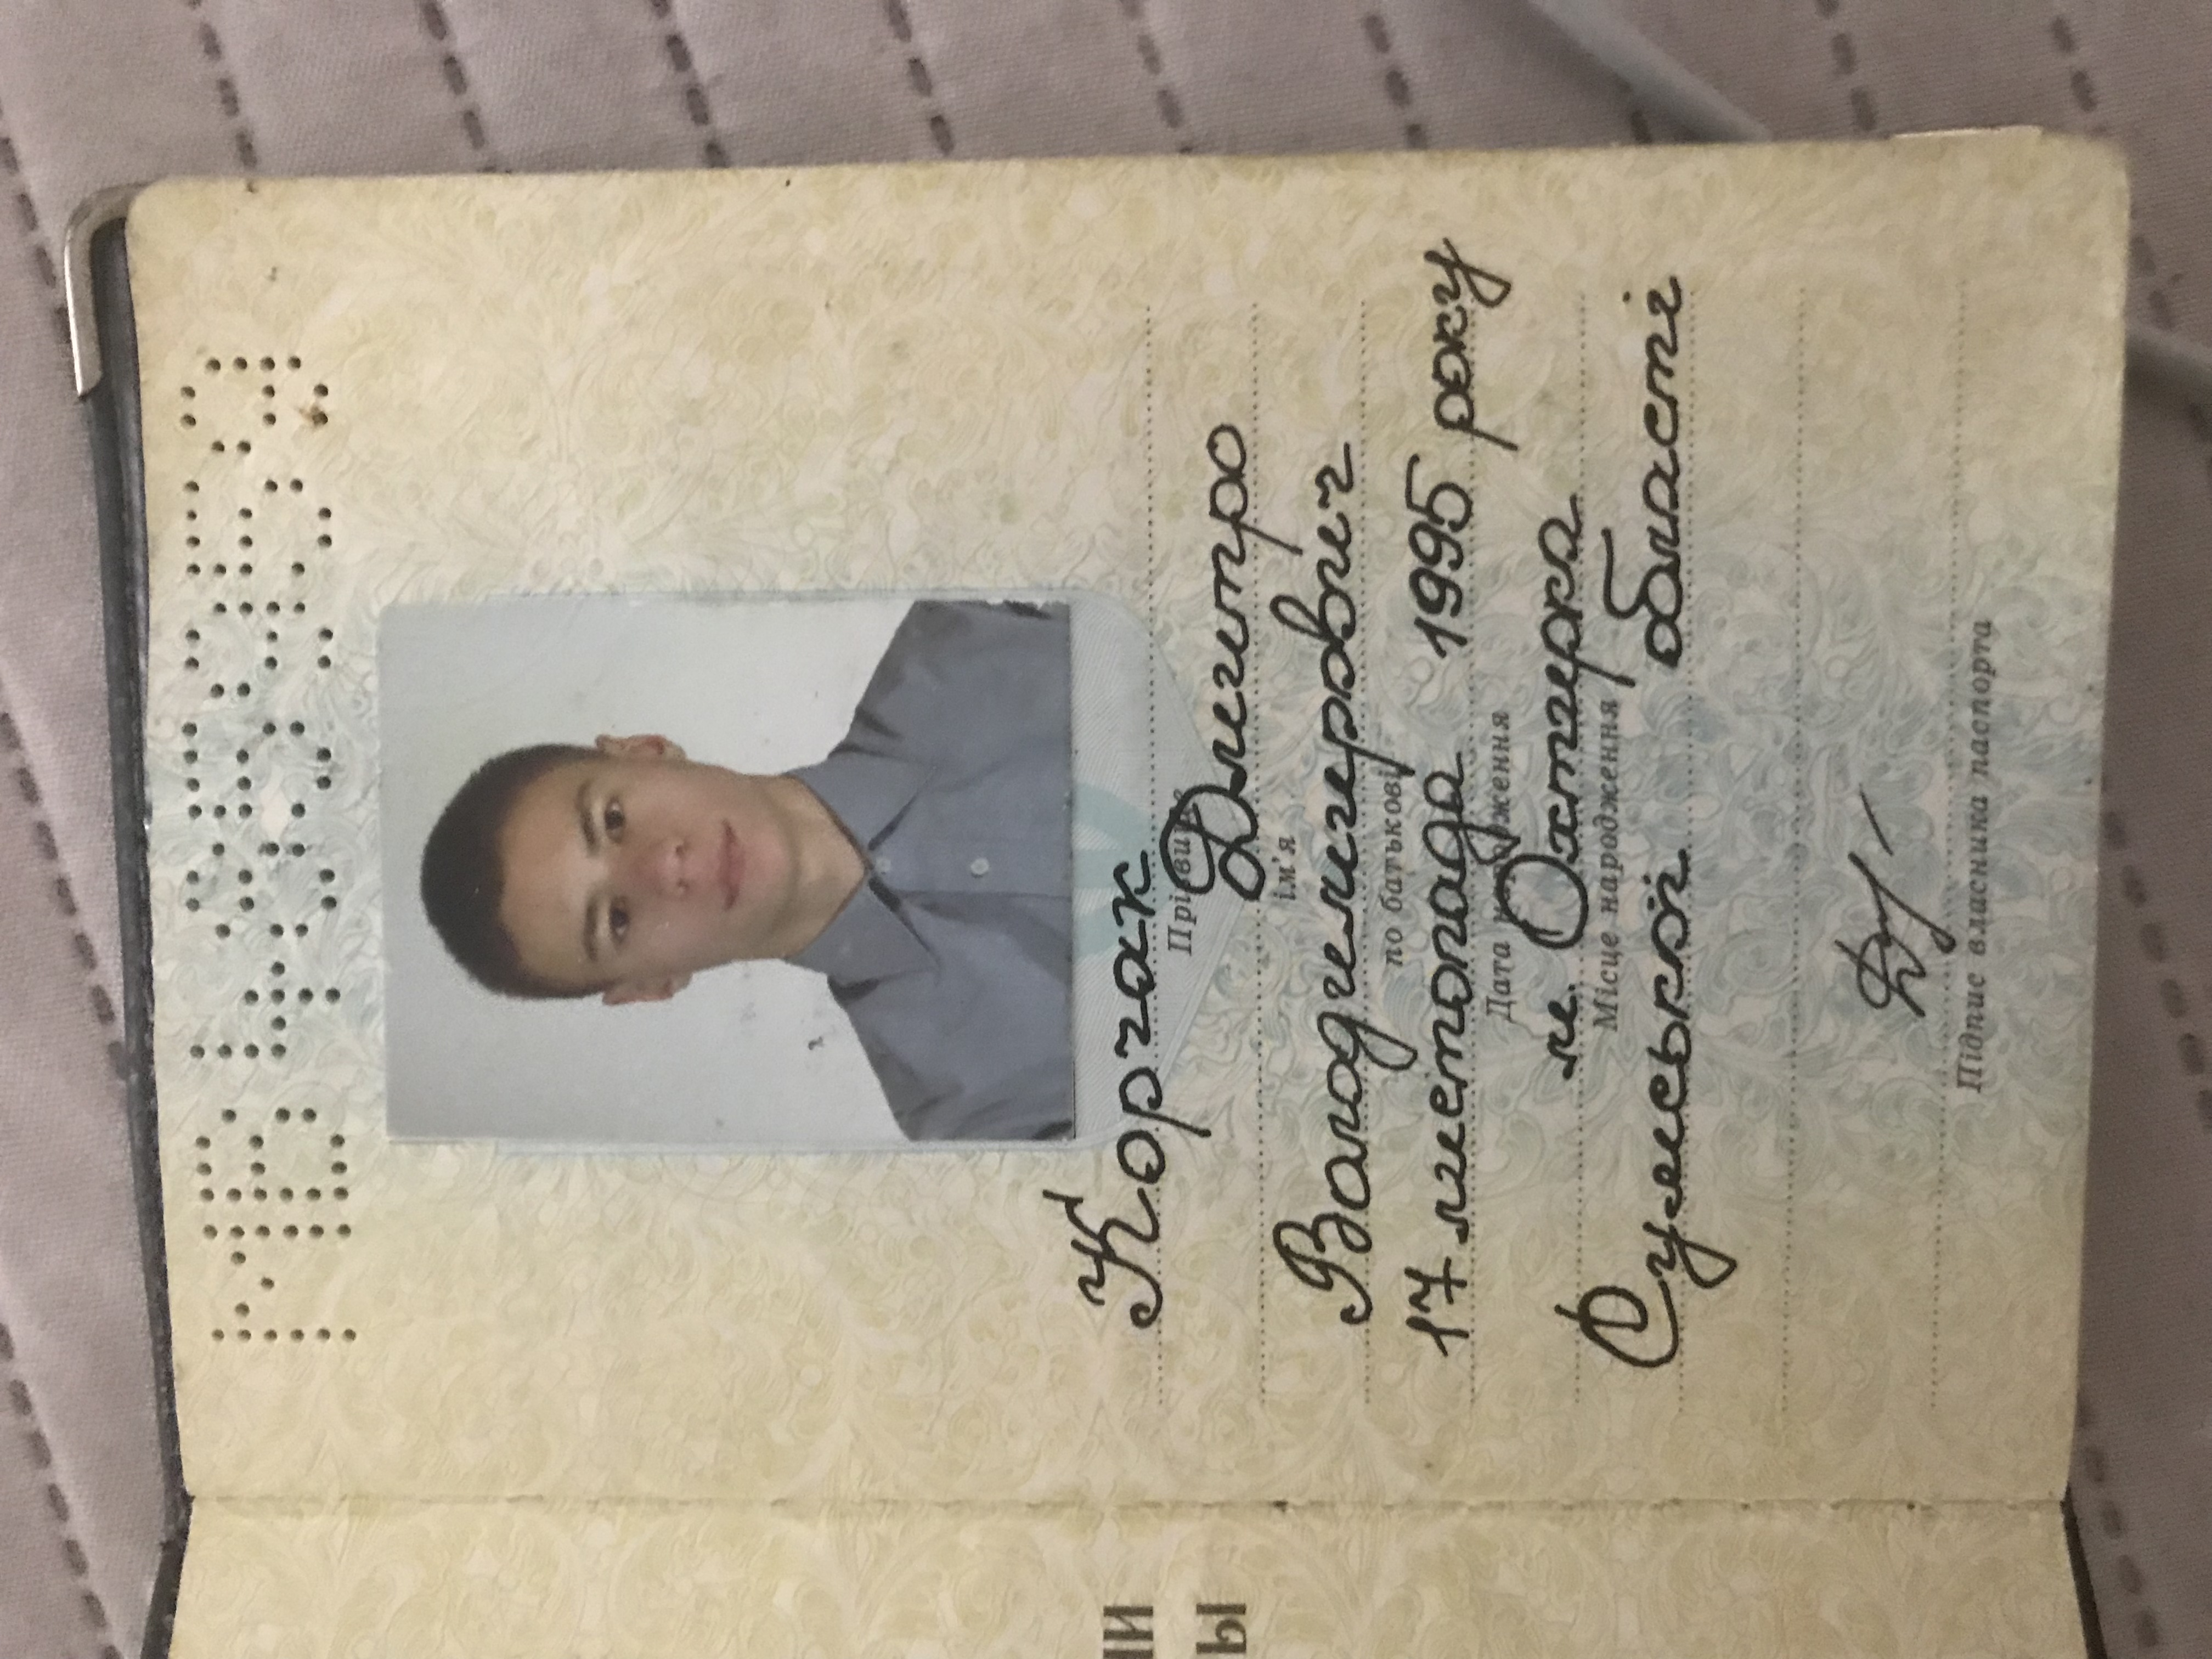 МВ 485959
Корчак
Прізвище
Дмитро
ім'я
Володимирович
по батькові
17 листопада 1995 року
Дата народження
м. Охтирка
Місце народження
Сумської області
Підпис власника паспорта